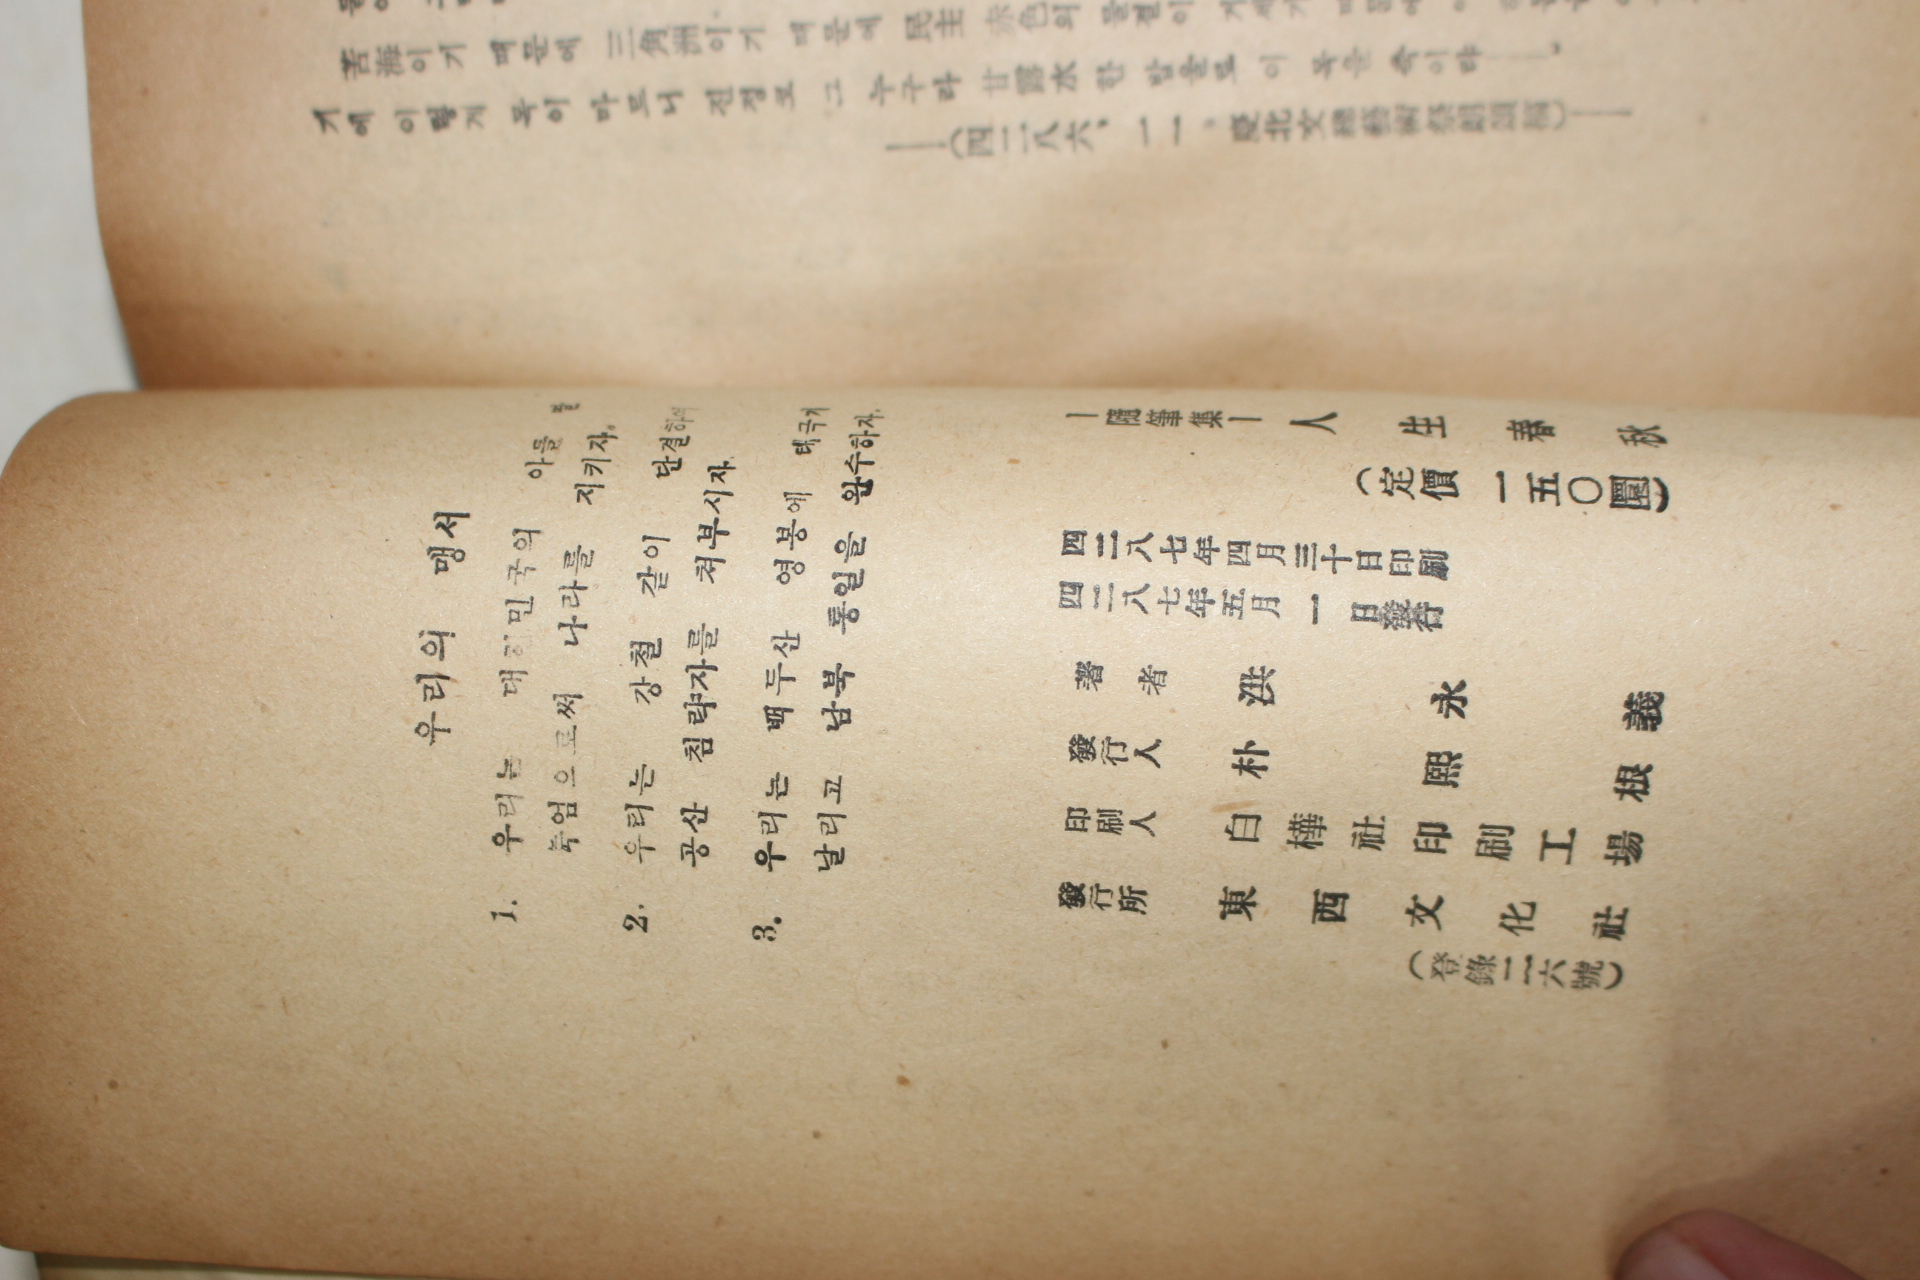 苦海이기 때문에 三角洲이기 때문에 民主 赤色의 물결이
기에 이렇게 목이 마르니 진정코 그 누구라 甘露水 한 방울로 이 목을 축이랴
(四二八六, 一一。慶北文總藝術祭朗誦詩)
우리의 맹서
1. 우리는 대한민국의 아들 딸
죽엄으로써 나라를 지키자。
2. 우리는 강철 같이 단결하여
공산 침략자를 처부시자
3. 우리는 백두산 영봉에 태극기
날리고 남북 통일을 완수하자.
—隨筆集— 人生春秋
(定價 一五〇圜)
四二八七年四月三十日印刷
四二八七年五月一日發行
著者 洪永義
發行人 朴熙根
印刷人 白樺社印刷工場
發行所 東西文化社
(登錄二一六號)